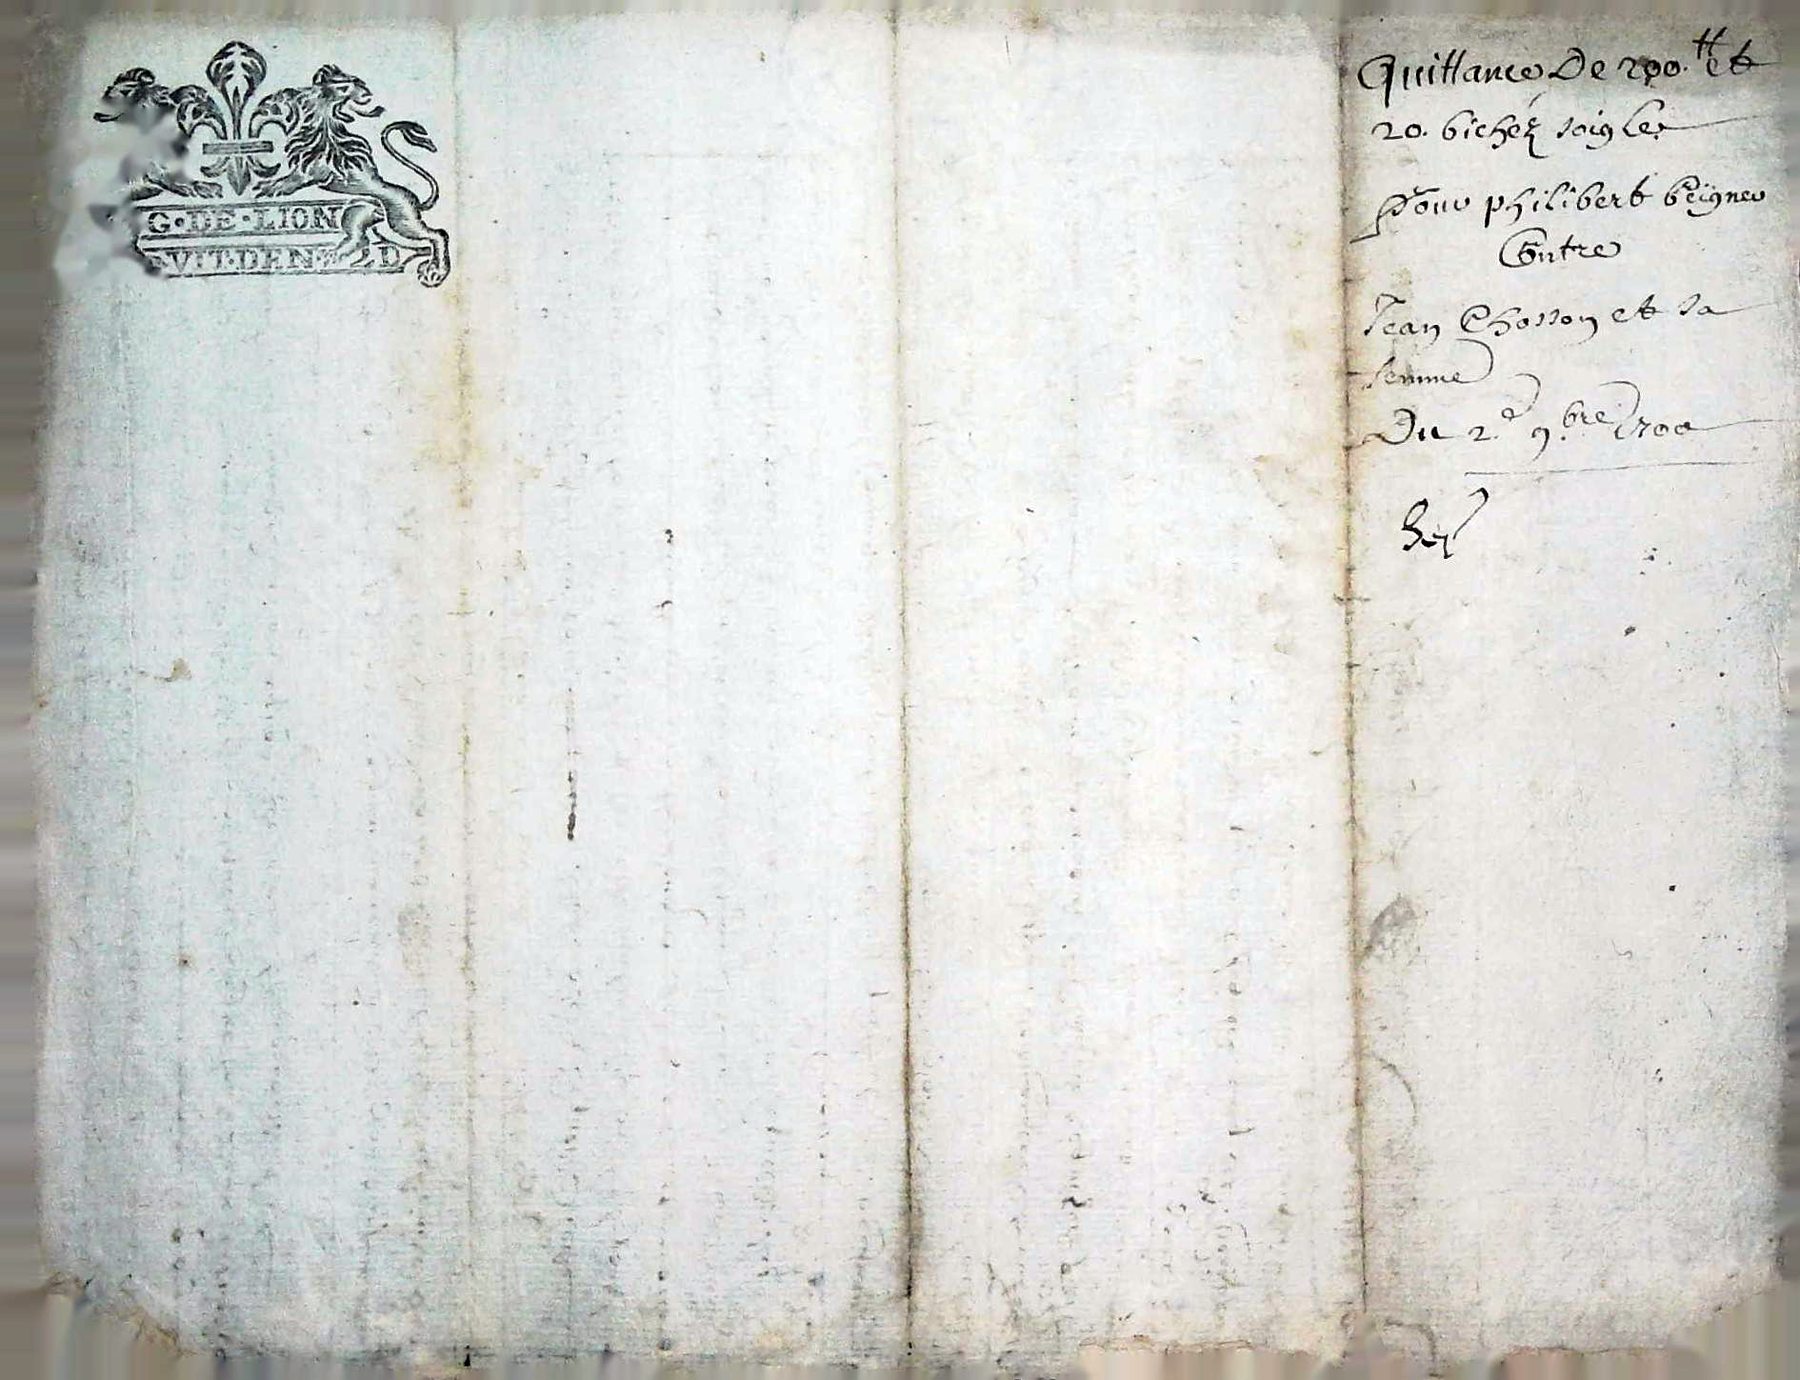 G·DE·LION
VIT·DEN· D
Quittance De 200.tt et
20. bichez soigle
Pour philibert Peigneu
Contre
Jean Chosson et sa
femme
Du 2e 9.bre 1700